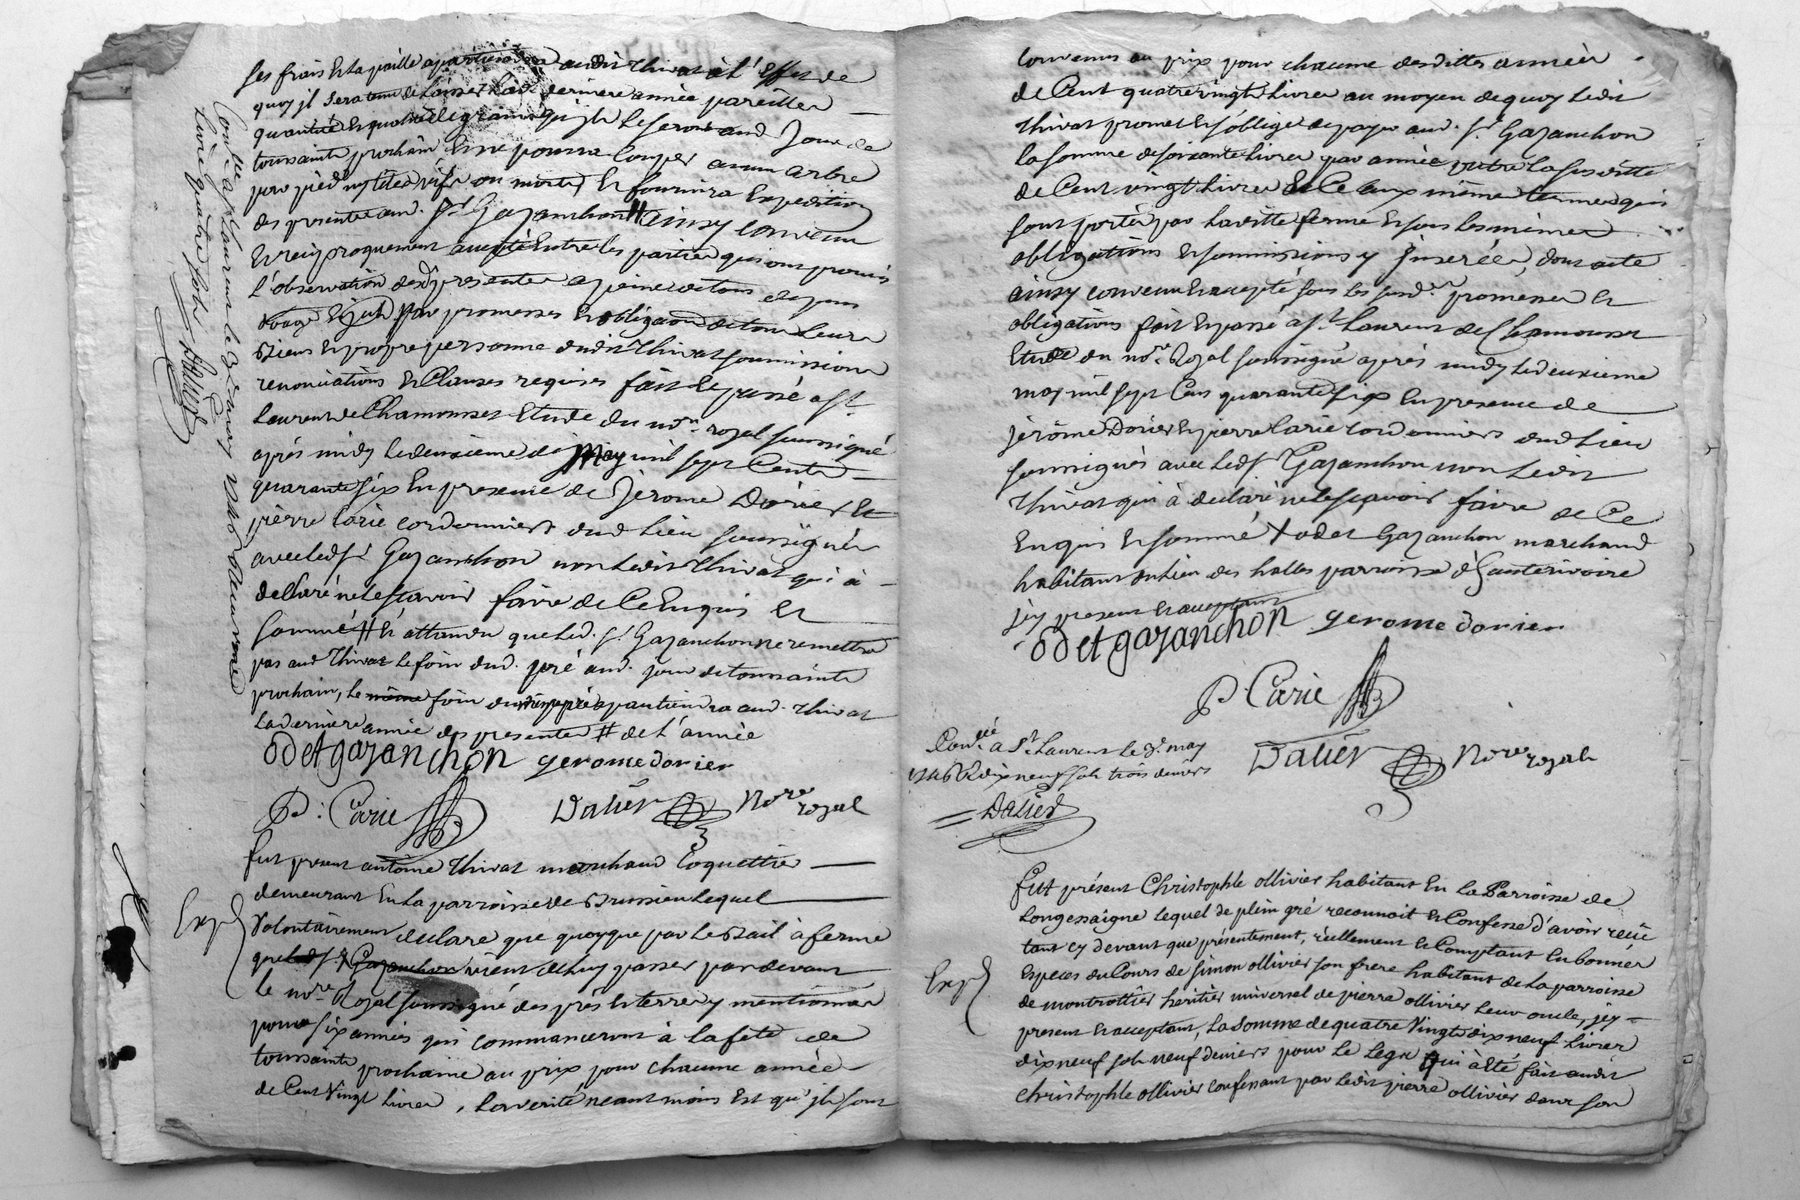 ses frais Et la paille apartiendra audit Thivat à l'Effet de
quoy jl sera tenu de laisser lad. derniere année pareilles
quantité Et qualité de grains qu'jls le seront aud. Jour de
toussaints prochain Et ne pourra Couper aucun arbre
par pied ny tetes vifs ou morts Et fournira Expedition
des presentes aud. sr. Gazanchon # ainsy convenu
Et reciproquement accepté Entre les parties qui ont promis
l'observation desd. presentes a peine de tous depens
Par promesses Et obligaon de tous leurs
Biens Et propre personne dudit Thivat soumissions
renonciations Et Clauses requises fait Et passé a St.
Laurent de Chamousset Etude du nore. royal soussigné
après midy le deuxieme de May mil sept Cents
quarante six En presence de Jerome Dorier Et
pierre Carie cordonniers dud. lieu soussignés
avec led. sr. Gazanchon non ledit Thivat qui à
declaré ne le scavoir faire de Ce Enquis et
sommé # Et attendu que led. sr. Gazanchon ne remettra
pas aud. Thivat le foin dud. pré aud. jour de toussaints
prochain, le même foin dud. pré apartiendra aud. Thivat
la derniere année des presentes # de l'année
odet gazanchon gerome dorier
P. Carie Dalier Nore royal
Conllé a St Laurent le 3e may 1746 Receu une
livre quatre sols Dalier
fut present antoine Thivat marchand Coquettier
demeurant En la parroisse de Brussieu lequel
Exp
Volontairement declare que quoyque par le Bail à ferme
que led. sr. Gazanchon vient de luy passer par devant
le nore. Royal soussigné des prés Et terres y mentionnés
pour six années qui commanceront à la fete de
toussaints prochaine au prix pour chacune année
de Cent Vingt livres, la verité neantmoins Est qu'jls sont
convenus au prix pour chacune desdittes années
de Cent quatre vingts livres au moyen de quoy ledit
Thivat promet Et s'oblige de payer aud. sr. Gazanchon
la somme de soixante livres par année outre la susditte
de Cent vingt livres Et Ce aux mêmes termes qui
sont portés par laditte ferme Et sous les mêmes
obligations Et soumissions y Jnserées, dont acte
ainsy convenu Et accepté sous les susd. promesses Et
obligations fait Et passé a St. Laurent de Chamousset
Etude du nore. Royal soussigné après midy le deuxieme
may mil sept Cens quarante six En presence de
jerôme Dorier Et pierre Carie cordonniers dud. lieu
soussignés avec led. sr Gazanchon non ledit
Thivat qui à declaré ne le scavoir faire de Ce
Enquis Et sommé X odet Gazanchon marchand
habitant du lieu des halles parroisse d'hauterivoire
jcy present Et acceptant
odet gazanchon gerome dorier
P Carie
Conllé a St. Laurent le 3e. may
1746 R dix neuf sols trois deniers
Dalier
Dalier Nore royal
Fut présent Christophle ollivier habitant En la Parroisse de
Longessaigne lequel de plein gré reconnoit Et Confesse d'avoir reçü
tant cy devant que présentement, réellement Et Comptant En bonnes
Exp
Especes du Cours de simon ollivier son frere habitant de la parroisse
de montrottier heritier universel de pierre ollivier leur oncle, jcy
present Et acceptant, la somme de quatre Vingts dix neuf livres
dix neuf sols neuf deniers pour le Legs qui à été fait audit
christophle ollivier confessant par ledit pierre ollivier dans son